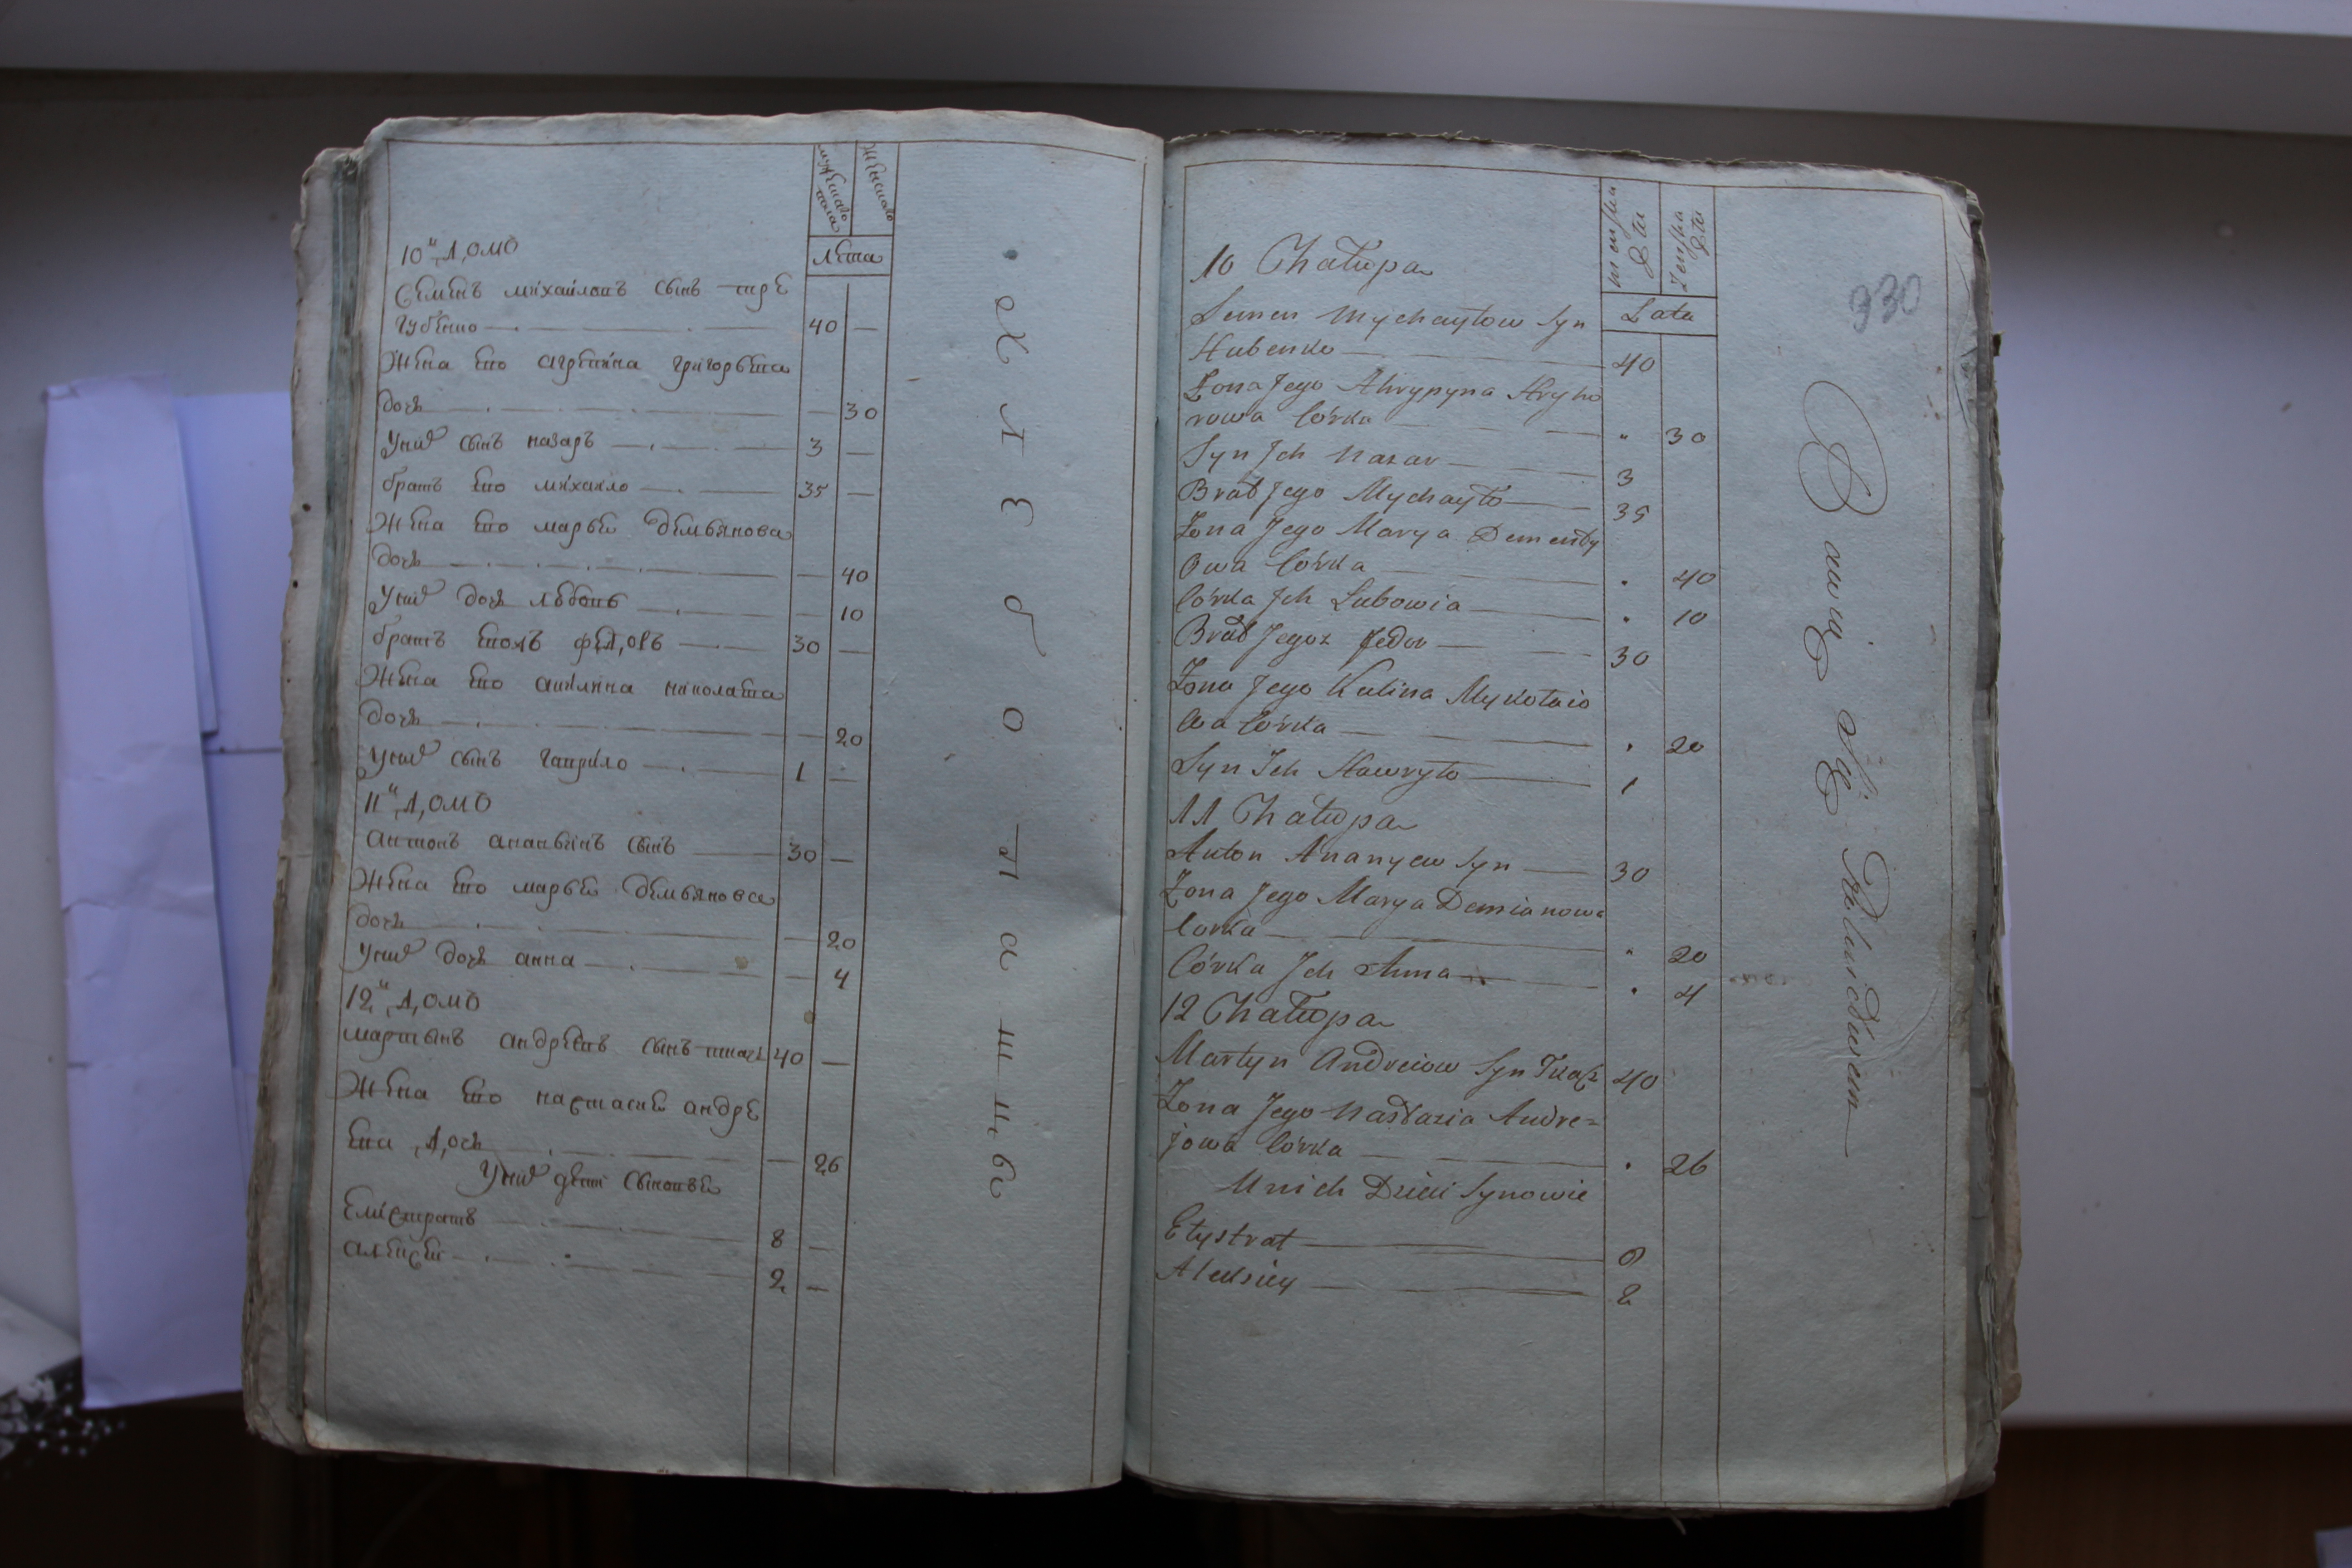 мужескаго пола
женскаго
лета
10й домъ
Семенъ михаиловъ сынъ
губенко 40 —
Жена его агрепина григорьева
дочь — 30
У них сынъ назаръ 3 —
братъ его михаило 35 —
Жена его марья демьянова
дочь — 40
У них дочь любовь — 10
братъ еговъ федоръ 30 —
Жена его акилина николаева
дочь — 20
У них сынъ гаврило 1 —
11й домъ
антонъ ананьинъ сынъ 30 —
Жена его марья демьянова
дочь — 20
У них дочь анна — 4
12й домъ
мартынъ андреевъ сынъ ткачь 40 —
Жена его настасия андре
ева дочь — 26
У них дети сыновья
Елистратъ 8 —
алексей 2 —
хлебопашцы
330
Męska
Zenska
Lata
10 Chałupa
Semen Mychayłow Syn
Hubenko 40
Zona Jego Ahrypyna Hryho
rowa Córka " 30
Syn Ich Nazar 3
Brat Jego Mychayło 35
Zona Jego Marya Dementy
owa Córka " 40
Córka Ich Lubowia " 10
Brat Jegoz Fedor 30
Zona Jego Kulina Mykołaio
wa Córka " 20
Syn Ich Hawryło 1
11 Chałupa
Anton Ananyew Syn 30
Zona Jego Marya Demianowa
Corka " 20
Córka Ich Anna " 4
12 Chałupa
Martyn Andreiow Syn Tkacz 40
Zona Jego Nastazia Andre=
jowa Córka " 26
Unich Dzieci Synowie
Elystrat 8
Aleksiey 2
Bawią Się Rolnictwem